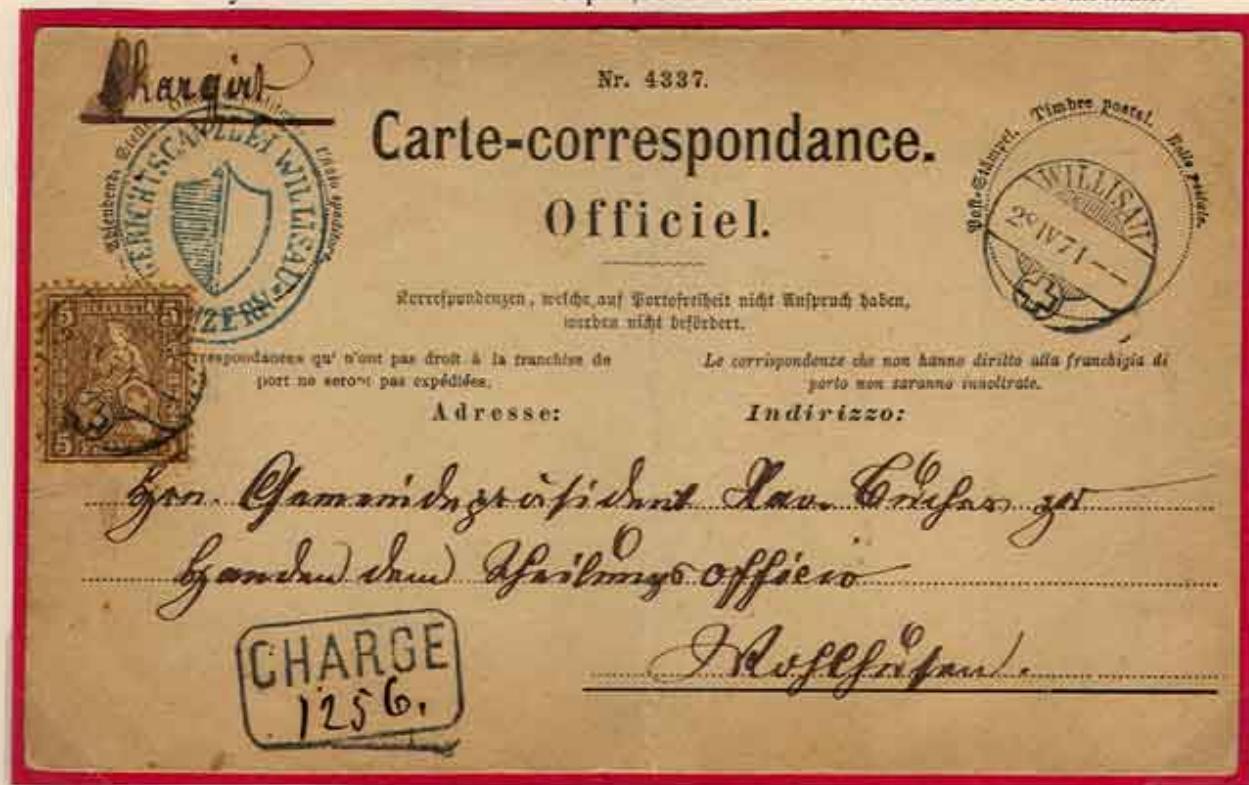 Chargirt
Nr. 4337.
Carte-correspondance.
Officiel.
GERICHTSCANZLEI WILLISAU
LUZERN
Ufficio speditore.
Post-Stämpel. Timbre postal. Bollo postale.
WILLISAU
28 IV 71
Korrespondenzen, welche auf Portofreiheit nicht Anspruch haben,
werden nicht befördert.
respondances qu' n'ont pas droit à la franchise de
port ne seront pas expédiées.
Le corrispondenze che non hanno diritto alla franchigia di
porto non saranno innoltrate.
5 HELVETIA 5
5 5
Adresse:
Indirizzo:
Hrn. Gemeindepräsident Xav. Bucher zu
Handen dem Theilungsofficio
Wohlhusen.
CHARGE
1256.